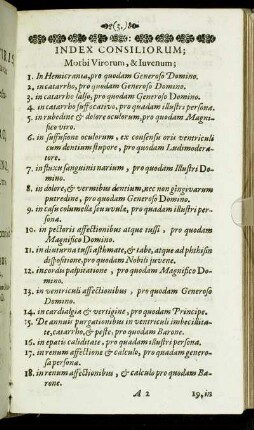 (3.)
INDEX CONSILIORUM;
Morbi Virorum, & Iuvenum;
1. In Hemicrania, pro quodam Generoso Domino.
2. in catarrho, pro quodam Generoso Domino.
3. in catarrho falso, pro quodam Generoso Domino.
4. in catarrho suffocativo, pro quadam illustri persona.
5. in rubedine & dolore oculorum, pro quodam Magni-
fico viro.
6. in suffusione oculorum, ex consensu oris ventriculi
cum dentium stupore, pro quodam Ludimodera-
tore.
7. in fluxu sanguinis narium, pro quodam Illustri Do-
mino.
8. in dolore, & vermibus dentium, nec non gingivarum
putredine, pro quodam Generoso Domino.
9. in casu columella seu uvulæ, pro quadam illustri per-
sona.
10. in pectoris affectionibus atque tussi, pro quodam
Magnifico Domino.
11. in diuturna tussi asthmate, & tabe, atque ad phthisin
dispositione, pro quodam Nobili juvene.
12. in cordis palpitatione, pro quodam Magnifico Do-
mino.
13. in ventriculi affectionibus, pro quodam Generoso
Domino.
14. in cardialgia & vertigine, pro quodam Principe.
15. De annuis purgationibus in ventriculi imbecillita-
te, catarrho, & peste, pro quodam Barone.
16. in epatis caliditate, pro quadam illustri persona.
17. in renum affectione & calculo, pro quadam genero-
sa persona.
18. in renum affectionibus, & calculo pro quodam Ba-
rone.
A 2 19. in